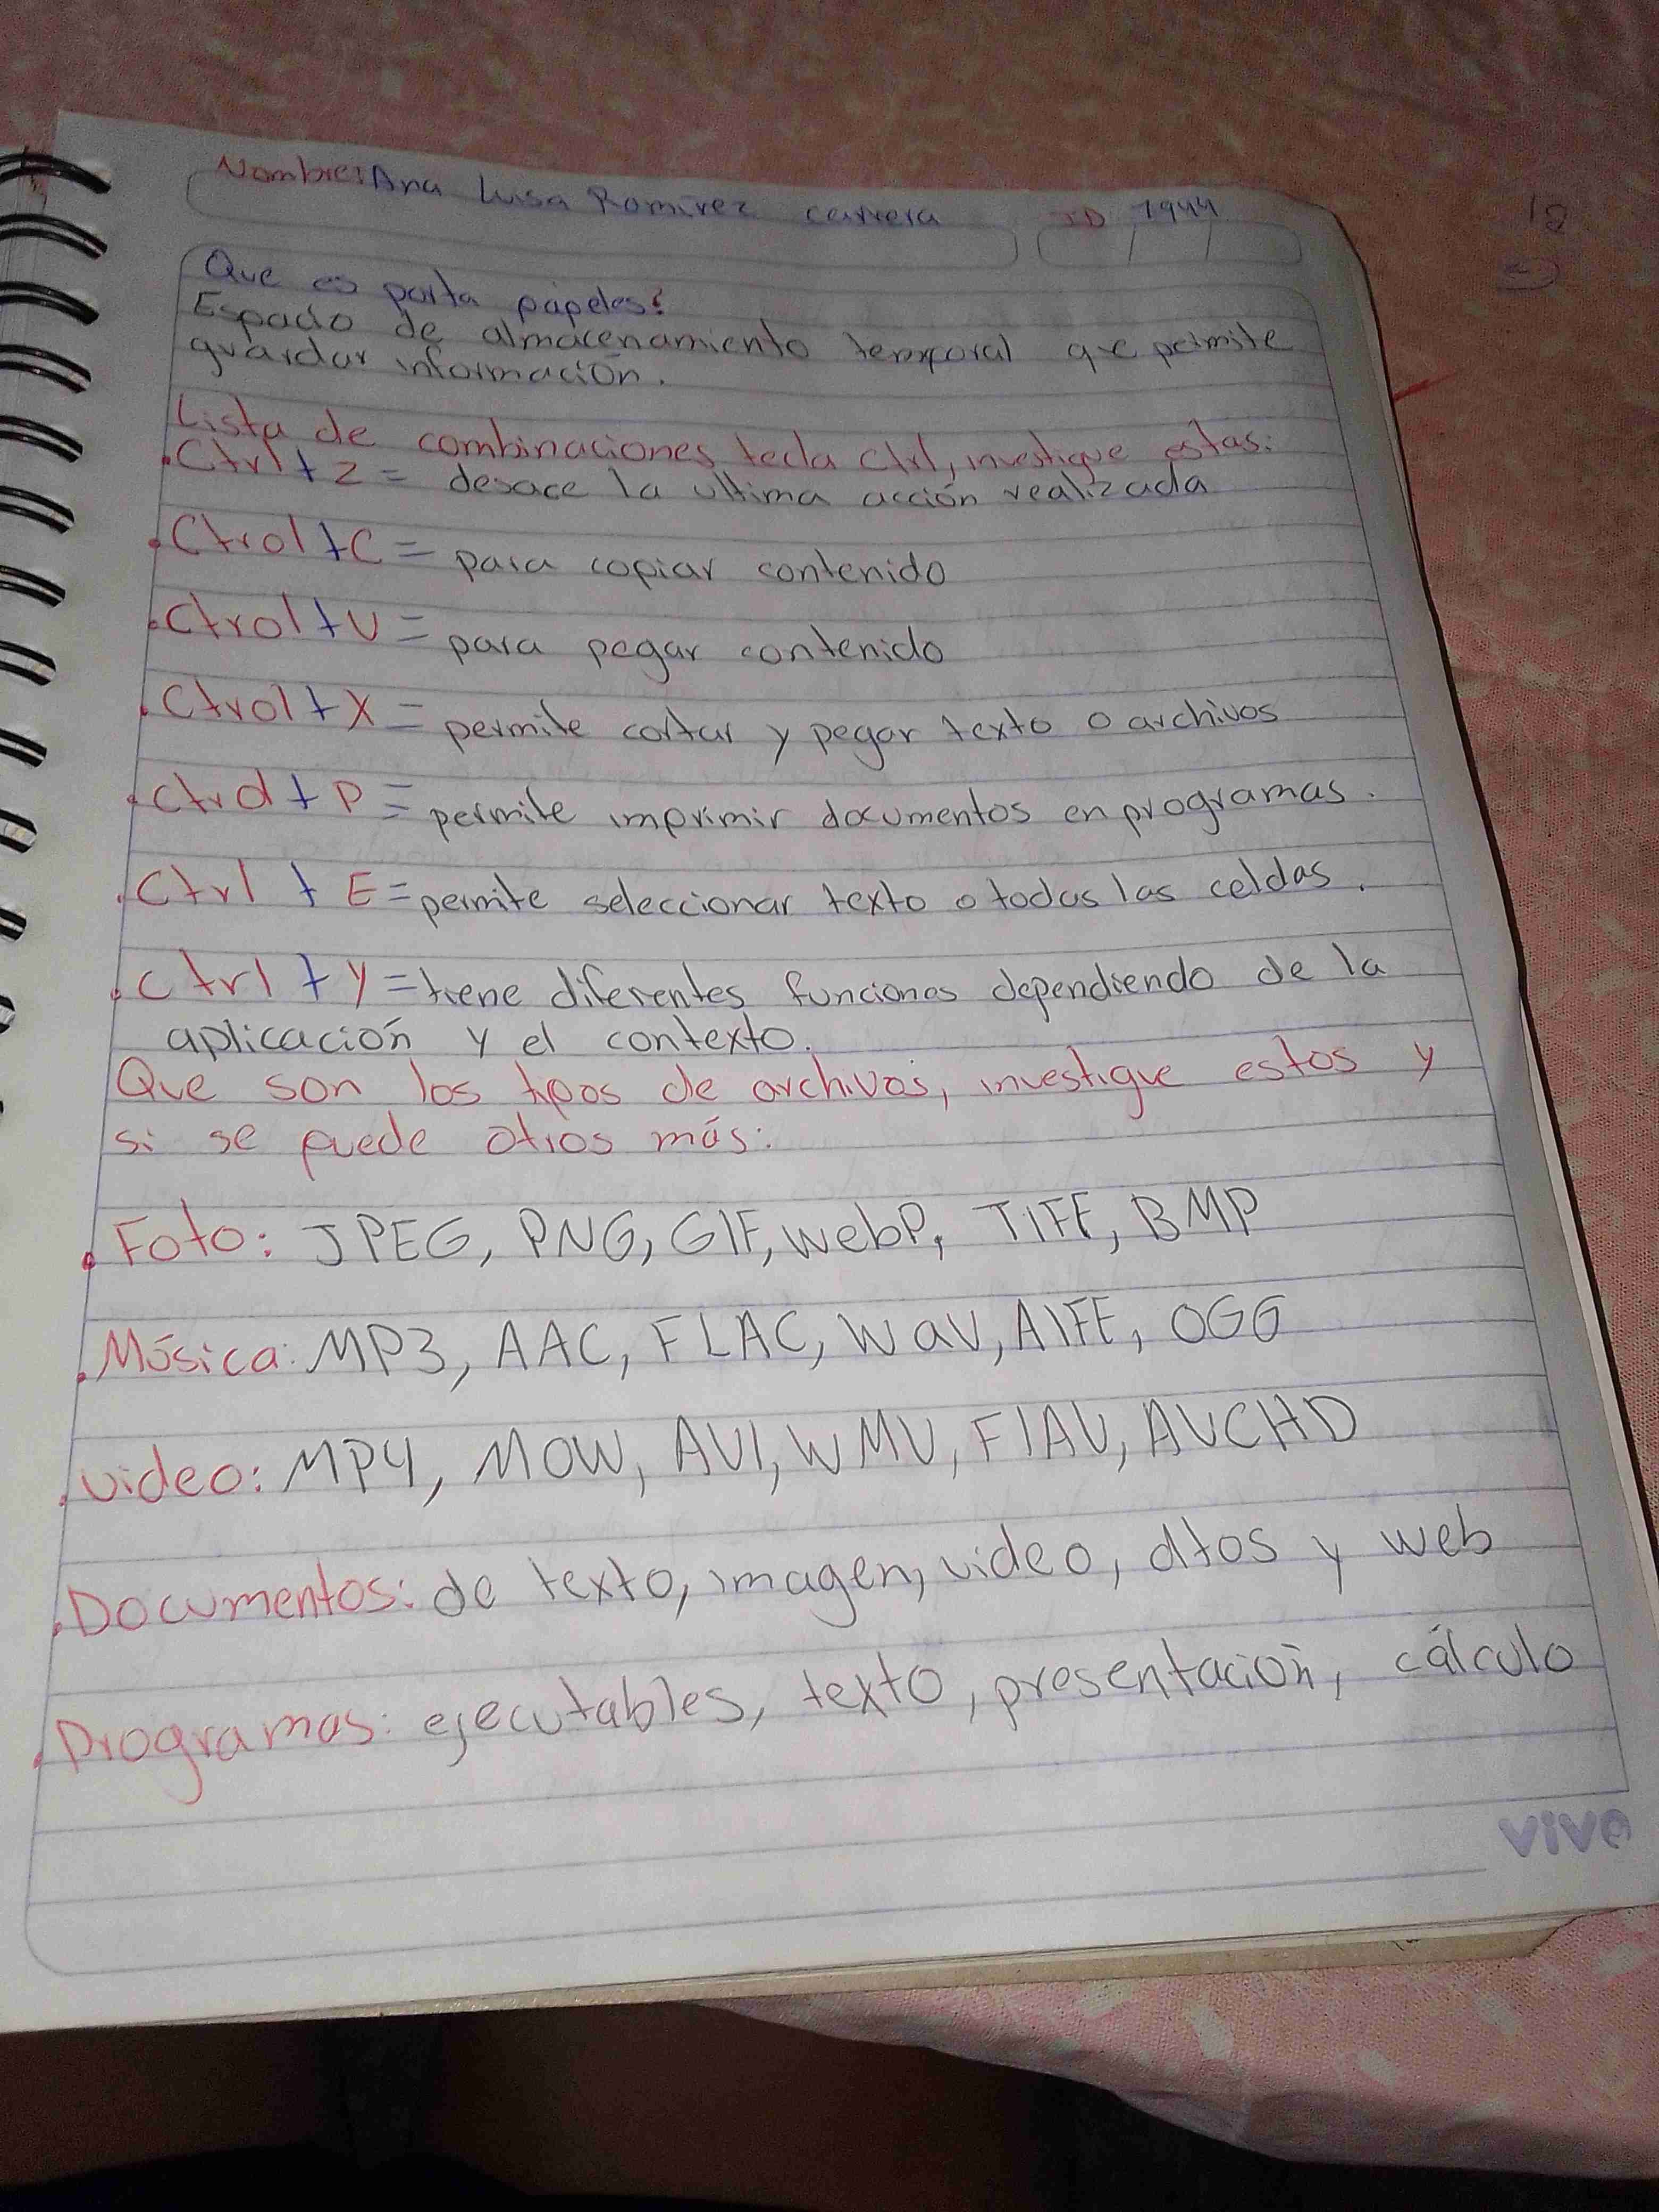 Nombre: Ana Luisa Ramirez carrera ID 1944
Que es porta papeles?
Espacio de almacenamiento temporal que permite
guardar información.
Lista de combinaciones tecla Ctrl, investigue estas:
.Ctrl + z = desace la ultima acción realizada
.Ctrol + C = para copiar contenido
.Ctrol + V = para pegar contenido
.Ctrol + X = permite cortar y pegar texto o archivos
.Ctrol + P = permite imprimir documentos en programas.
.Ctrl + E = permite seleccionar texto o todas las celdas.
.Ctrl + y = tiene diferentes funciones dependiendo de la
aplicación y el contexto.
Que son los tipos de archivos, investigue estos y
si se puede otros más:
.Foto: JPEG, PNG, GIF, webP, TIFF, BMP
.Música: MP3, AAC, FLAC, Wav, AIFF, OGG
.video: MP4, MOW, AVI, WMV, FlAV, AVCHD
.Documentos: de texto, imagen, video, dtos y web
.Programas: ejecutables, texto, presentación, cálculo
vivo